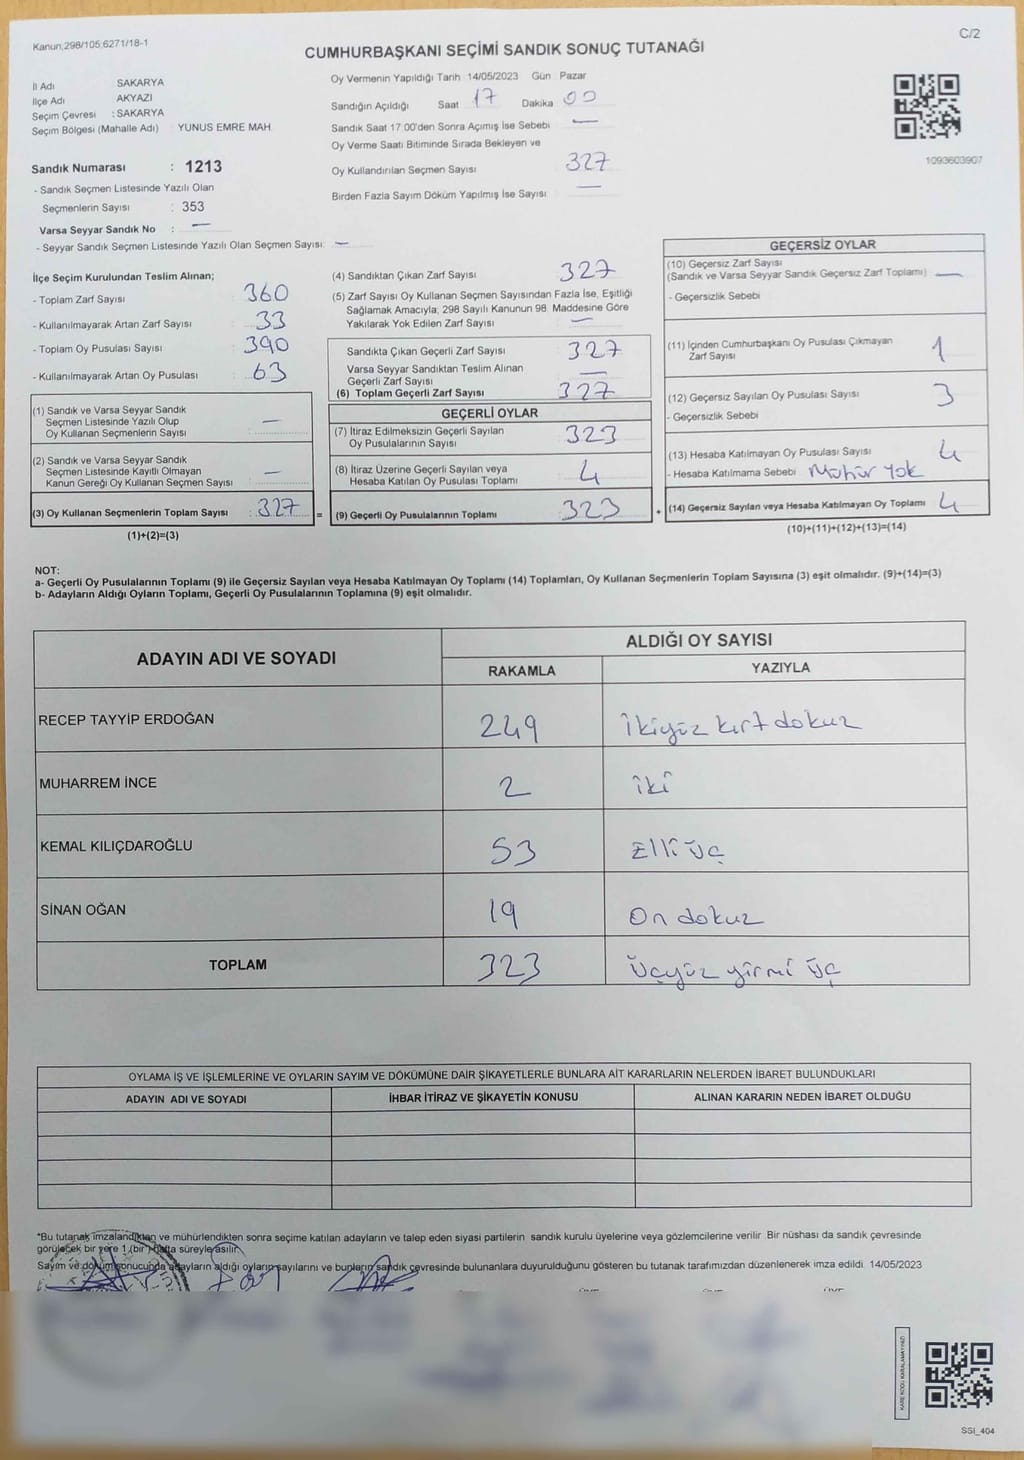 Kanun,298/105,6271/18-1
C/2
CUMHURBAŞKANI SEÇİMİ SANDIK SONUÇ TUTANAĞI
İl Adı SAKARYA
İlçe Adı AKYAZI
Seçim Çevresi : SAKARYA
Seçim Bölgesi (Mahalle Adı) YUNUS EMRE MAH.
Sandık Numarası : 1213
- Sandık Seçmen Listesinde Yazılı Olan
Seçmenlerin Sayısı : 353
Varsa Seyyar Sandık No : —
- Seyyar Sandık Seçmen Listesinde Yazılı Olan Seçmen Sayısı: —
Oy Vermenin Yapıldığı Tarih 14/05/2023 Gün : Pazar
Sandığın Açıldığı Saat 17 Dakika 00
Sandık Saat 17:00'den Sonra Açımış İse Sebebi —
Oy Verme Saati Bitiminde Sırada Bekleyen ve
Oy Kullandırılan Seçmen Sayısı 327
Birden Fazla Sayım Döküm Yapılmış İse Sayısı —
1093603907
İlçe Seçim Kurulundan Teslim Alınan;
- Toplam Zarf Sayısı 360
- Kullanılmayarak Artan Zarf Sayısı 33
- Toplam Oy Pusulası Sayısı 390
- Kullanılmayarak Artan Oy Pusulası 63
(1) Sandık ve Varsa Seyyar Sandık
Seçmen Listesinde Yazılı Olup
Oy Kullanan Seçmenlerin Sayısı —
(2) Sandık ve Varsa Seyyar Sandık
Seçmen Listesinde Kayıtlı Olmayan
Kanun Gereği Oy Kullanan Seçmen Sayısı —
(3) Oy Kullanan Seçmenlerin Toplam Sayısı : 327 =
(1)+(2)=(3)
(4) Sandıktan Çıkan Zarf Sayısı 327
(5) Zarf Sayısı Oy Kullanan Seçmen Sayısından Fazla İse, Eşitliği
Sağlamak Amacıyla; 298 Sayılı Kanunun 98. Maddesine Göre
Yakılarak Yok Edilen Zarf Sayısı —
Sandıkta Çıkan Geçerli Zarf Sayısı 327
Varsa Seyyar Sandıktan Teslim Alınan
Geçerli Zarf Sayısı —
(6) Toplam Geçerli Zarf Sayısı 327
GEÇERLİ OYLAR
(7) İtiraz Edilmeksizin Geçerli Sayılan
Oy Pusulalarının Sayısı 323
(8) İtiraz Üzerine Geçerli Sayılan veya
Hesaba Katılan Oy Pusulası Toplamı 4
(9) Geçerli Oy Pusulalarının Toplamı 323 +
GEÇERSİZ OYLAR
(10) Geçersiz Zarf Sayısı
(Sandık ve Varsa Seyyar Sandık Geçersiz Zarf Toplamı) —
- Geçersizlik Sebebi
(11) İçinden Cumhurbaşkanı Oy Pusulası Çıkmayan
Zarf Sayısı 1
(12) Geçersiz Sayılan Oy Pusulası Sayısı 3
- Geçersizlik Sebebi
(13) Hesaba Katılmayan Oy Pusulası Sayısı 4
- Hesaba Katılmama Sebebi Mühür Yok
(14) Geçersiz Sayılan veya Hesaba Katılmayan Oy Toplamı 4
(10)+(11)+(12)+(13)=(14)
NOT:
a- Geçerli Oy Pusulalarının Toplamı (9) ile Geçersiz Sayılan veya Hesaba Katılmayan Oy Toplamı (14) Toplamları, Oy Kullanan Seçmenlerin Toplam Sayısına (3) eşit olmalıdır. (9)+(14)=(3)
b- Adayların Aldığı Oyların Toplamı, Geçerli Oy Pusulalarının Toplamına (9) eşit olmalıdır.
ADAYIN ADI VE SOYADI ALDIĞI OY SAYISI
RAKAMLA YAZIYLA
RECEP TAYYİP ERDOĞAN 249 İkiyüz kırt dokuz
MUHARREM İNCE 2 iki
KEMAL KILIÇDAROĞLU 53 Elli üç
SİNAN OĞAN 19 On dokuz
TOPLAM 323 Üçyüz yirmi üç
OYLAMA İŞ VE İŞLEMLERİNE VE OYLARIN SAYIM VE DÖKÜMÜNE DAİR ŞİKAYETLERLE BUNLARA AİT KARARLARIN NELERDEN İBARET BULUNDUKLARI
ADAYIN ADI VE SOYADI İHBAR İTİRAZ VE ŞİKAYETİN KONUSU ALINAN KARARIN NEDEN İBARET OLDUĞU
*Bu tutanak imzalandıktan ve mühürlendikten sonra seçime katılan adayların ve talep eden siyasi partilerin sandık kurulu üyelerine veya gözlemcilerine verilir. Bir nüshası da sandık çevresinde
görülecek bir yere 1 (bir) hafta süreyle asılır.
Sayım ve döküm sonucunda adayların aldığı oyların sayılarını ve bunların sandık çevresinde bulunanlara duyurulduğunu gösteren bu tutanak tarafımızdan düzenlenerek imza edildi. 14/05/2023
KARE KODU KARALAMAYINIZ!
SSI_404